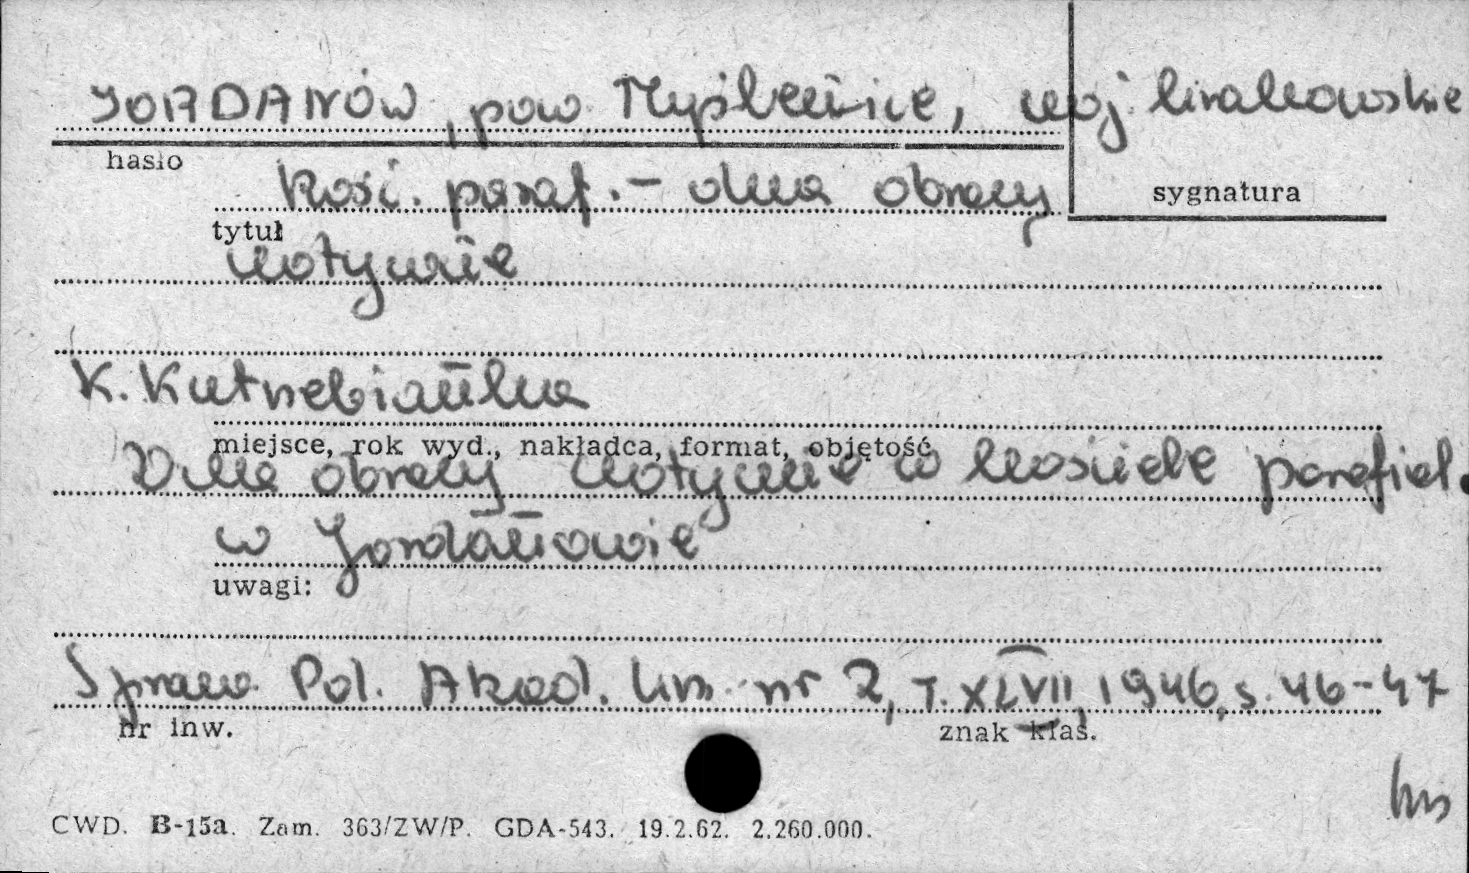 JORDANÓW, pow. Myślenice, woj. krakowskie
hasło
Kość. paraf. - dwa obrazy
sygnatura
tytuł
wotywne
K. Kutrzebianka
miejsce, rok wyd., nakładca, format, objętość
Dwa obrazy wotywne w kościele parafial.
w Jordanowie
uwagi:
Spraw. Pol. Akad. Um. nr 2, T. XLVII, 1946, s. 46-47
nr inw.
znak klas.
CWD. B-15a. Zam. 363/ZW/P. GDA-543. 19.2.62. 2.260.000.